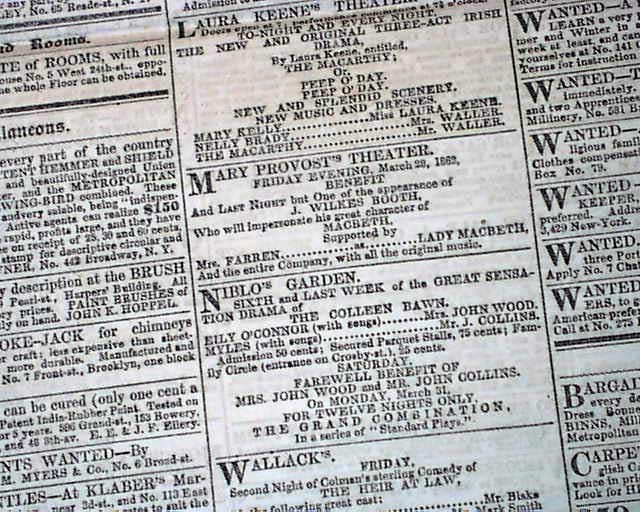 any, No. 65 Reade-st., N.
nd Rooms.
TE of ROOMS, with full
ouse No. 5 West 24th-st., oppo-
he whole Floor can be obtained.
llaneous.
every part of the country
TENT HEMMER and SHIELD
and beautifully-designed Union
er, and the METROPOLITAN
WING-BIRD combined. These
and very salable, being "indispen-
Active agents can realize $150
rapid, profits large, and they have
on receipt of 25, 30 and 60 cents,
stamp for descriptive circular and
NER, No. 442 Broadway, N. Y.
y description at the BRUSH
Pearl-st., Harpers' Building. All
ory prices. PAINT BRUSHES of
ly on hand. JOHN K. HOPPEL.
OKE-JACK for chimneys
er craft; less expensive than sheet-
more durable. Manufactured and
No. 7 Front-st., Brooklyn, one block
can be cured (only one cent a
Patent India-Rubber Paint. Tested on
for 5 years. 596 Grand-st., 153 Bowery,
and 48 8th-av. E. E. & J. F. Ellery.
NTS WANTED—By
M. MYERS & Co., No. 6 Broad-st.
TLES—At KLABER'S Mar-
near 3d-st., and No. 113 East
Admission to
LAURA KEENE'S THEATER.
TO-NIGHT AND EVERY NIGHT,
THE NEW AND ORIGINAL THREE-ACT IRISH
DRAMA,
By Laura Keene, entitled,
THE MACARTHY;
Or,
PEEP O'DAY.
PEEP O'DAY.
NEW AND SPLENDID SCENERY.
NEW MUSIC AND DRESSES.
MARY KELLY..........Miss LAURA KEENE.
NELLY BRADY..........Mrs. WALLER.
THE MACARTHY..........Mr. WALLER.
MARY PROVOST'S THEATER.
FRIDAY EVENING, March 28, 1862,
BENEFIT
And LAST NIGHT but One of the appearance of
J. WILKES BOOTH,
Who will impersonate his great character of
MACBETH.
Supported by
Mrs. FARREN..........as..........LADY MACBETH,
And the entire Company, with all the original music.
NIBLO'S GARDEN.
SIXTH and LAST WEEK of the GREAT SENSA-
TION DRAMA of
THE COLLEEN BAWN.
EILY O'CONNOR (with songs)..........Mrs. JOHN WOOD.
MYLES (with songs)..........Mr. J. COLLINS.
Admission 50 cents; Secured Parquet Stalls, 75 cents; Fam-
ily Circle (entrance on Crosby-st.), 25 cents.
SATURDAY,
FAREWELL BENEFIT OF
MRS. JOHN WOOD and MR. JOHN COLLINS.
On MONDAY, March
FOR TWELVE NIGHTS ONLY,
THE GRAND COMBINATION,
In a series of "Standard Plays."
WALLACK'S.
FRIDAY.
Second Night of Colman's sterling Comedy of
THE HEIR AT LAW,
the following great cast:
Mr. Blake
Mr. Mark Smith
WANTED—A
LEARN a very
mer and Winter in
week at least, and
yourselves at No. 141
Terms for instruction
WANTED—
immediately,
and two Apprentices
Millinery, No. 581
WANTED—
ligious family
Clothes compensa
Box No. 79.
WANTED
KEEPER,
preferred. Addre
5,429 New-York.
WANTED
three Port
Apply No. 7 Cha
WANTE
ERS, to
American prefer
Call at No. 275
BARGA
every de
Dress Bonn
BINNS, Mill
Metropolitan
CARPE
glish C
vance in pri
Look for H